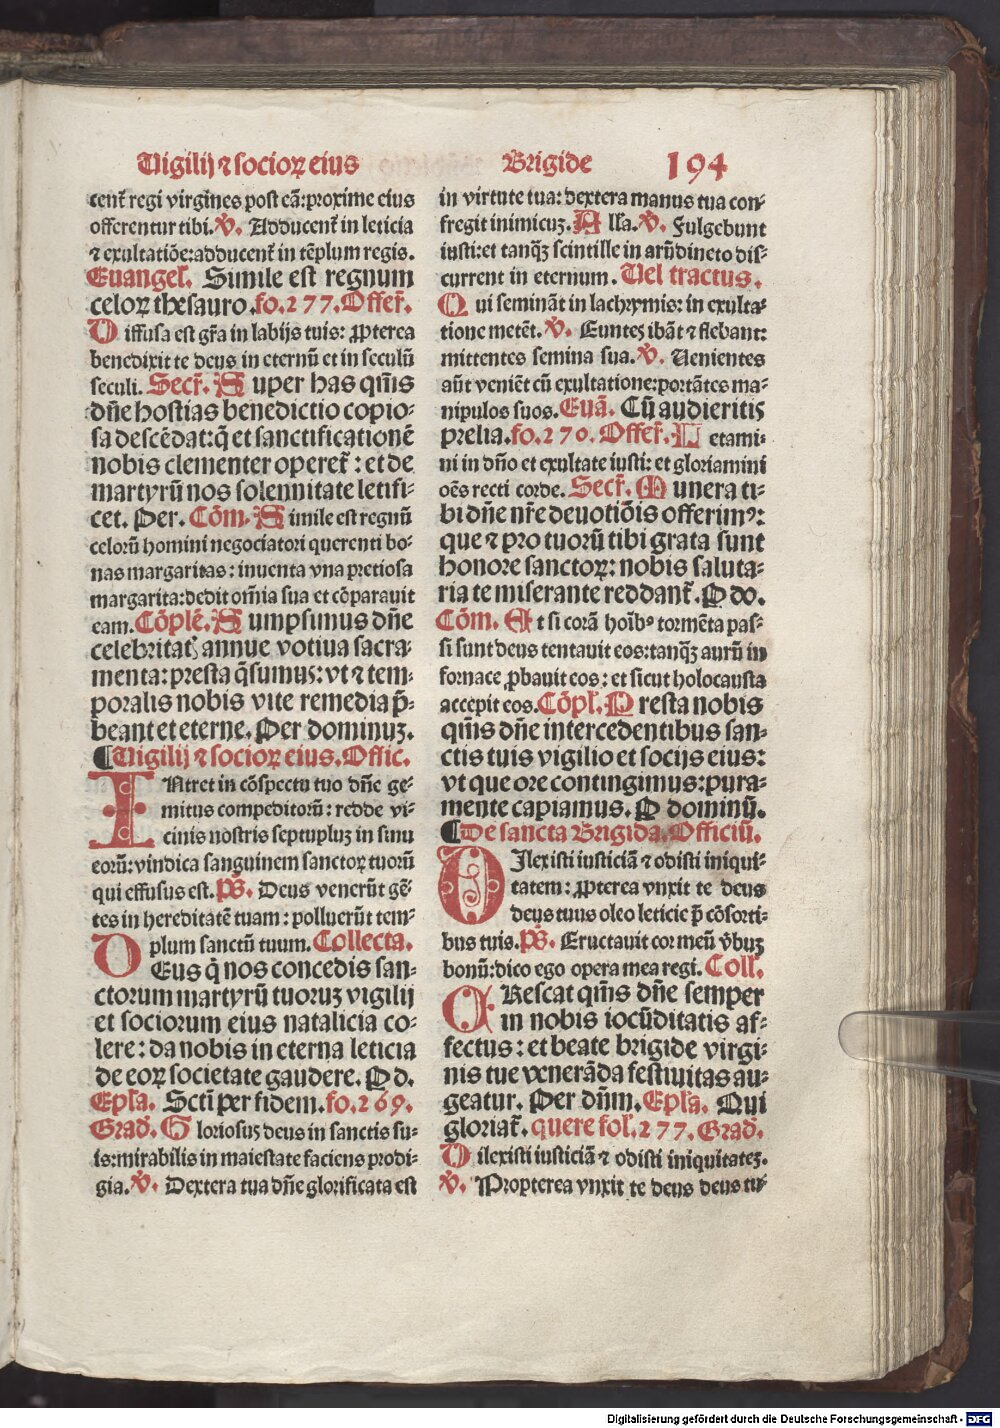 Uigilij ⁊ socioꝝ eius
Brigide
194
cent᷑ regi virgines post eā:proxime eius
offerentur tibi. ℣. Adducent᷑ in leticia
⁊ exultatiōe:adducent᷑ in tēplum regis.
Euangel᷑. Simile est regnum
celoꝝ thesauro.fo.277.Offer᷑.
Diffusa est gr̄a in labijs tuis: ꝓpterea
benedixit te deus in eternū et in seculū
seculi. Secr᷑. Super has qm̄s
dn̄e hostias benedictio copio⸗
sa descēdat:q̄ et sanctificationē
nobis clementer operet᷑ : et de
martyrū nos solennitate letifi⸗
cet. Per. Cōm. Simile est regnū
celorū homini negociatori querenti bo⸗
nas margaritas: inuenta vna pretiosa
margarita:dedit om̄ia sua et cōparauit
eam.Cōplē. Sumpsimus dn̄e
celebritat᷑ annue votiua sacra⸗
menta:presta q̄sumus:vt ⁊ tem⸗
poralis nobis vite remedia p̄⸗
beant et eterne. Per dominuꝫ.
¶Uigilij ⁊ socioꝝ eius.Offic.
INtret in cōspectu tuo dn̄e ge⸗
mitus compeditorū: redde vi⸗
cinis nostris septupluꝫ in sinu
eorū:vindica sanguinem sanctoꝝ tuorū
qui effusus est.P̄s. Deus venerūt gē⸗
tes in hereditatē tuam : polluerūt tem⸗
plum sanctū tuum. Collecta.
DEus q̄ nos concedis san⸗
ctorum martyrū tuoruꝫ vigilij
et sociorum eius natalicia co⸗
lere: da nobis in eterna leticia
de eoꝝ societate gaudere. P d.
Epl̄a. Sctī per fidem.fo.269.
Grad᷑. Gloriosus deus in sanctis su⸗
is:mirabilis in maiestate faciens prodi⸗
gia.℣. Dextera tua dn̄e glorificata est
in virtute tua: dextera manus tua con⸗
fregit inimicuꝫ.All̄a.℣. Fulgebunt
iusti:et tanqꝫ scintille in arūdineto dis⸗
current in eternum. Uel tractus.
Qui semināt in lachrymis: in exulta⸗
tione metēt. ℣. Euntes ibāt ⁊ flebant:
mittentes semina sua.℣. Uenientes
aūt veniēt cū exultatione:portātes ma⸗
nipulos suos.Euā. Cū audieritis
prelia.fo.270.Offer᷑.Letami⸗
ni in dn̄o et exultate iusti: et gloriamini
oēs recti corde. Secr᷑. Munera ti⸗
bi dn̄e nr̄e deuotiōis offerimꝰ:
que ⁊ pro tuorū tibi grata sunt
honore sanctoꝝ: nobis saluta⸗
ria te miserante reddant᷑. P do.
Cōm. Et si corā hoībꝰ tormēta pas⸗
si sunt deus tentauit eos:tanqꝫ aurū in
fornace ꝓbauit eos: et sicut holocausta
accepit eos.Cōpl᷑.Presta nobis
qm̄s dn̄e intercedentibus san⸗
ctis tuis vigilio et socijs eius:
vt que ore contingimus:pura⸗
mente capiamus. P dominū.
¶De sancta Brigida.Officiū.
DIlexisti iusticiā ⁊ odisti iniqui⸗
tatem: ꝓpterea vnxit te deus
deus tuus oleo leticie p̄ cōsorti⸗
bus tuis.P̄s. Eructauit cor meū v̄buꝫ
bonū:dico ego opera mea regi. Coll.
CRescat qm̄s dn̄e semper
in nobis iocūditatis af⸗
fectus: et beate brigide virgi⸗
nis tue venerāda festiuitas au⸗
geatur. Per dn̄m. Epl̄a. Qui
gloriat᷑. quere fol᷑.277. Grad᷑.
Dilexisti iusticiā ⁊ odisti iniquitateꝫ.
℣. Propterea vnxit te deus deus tu⸗
Digitalisierung gefördert durch die Deutsche Forschungsgemeinschaft - DFG